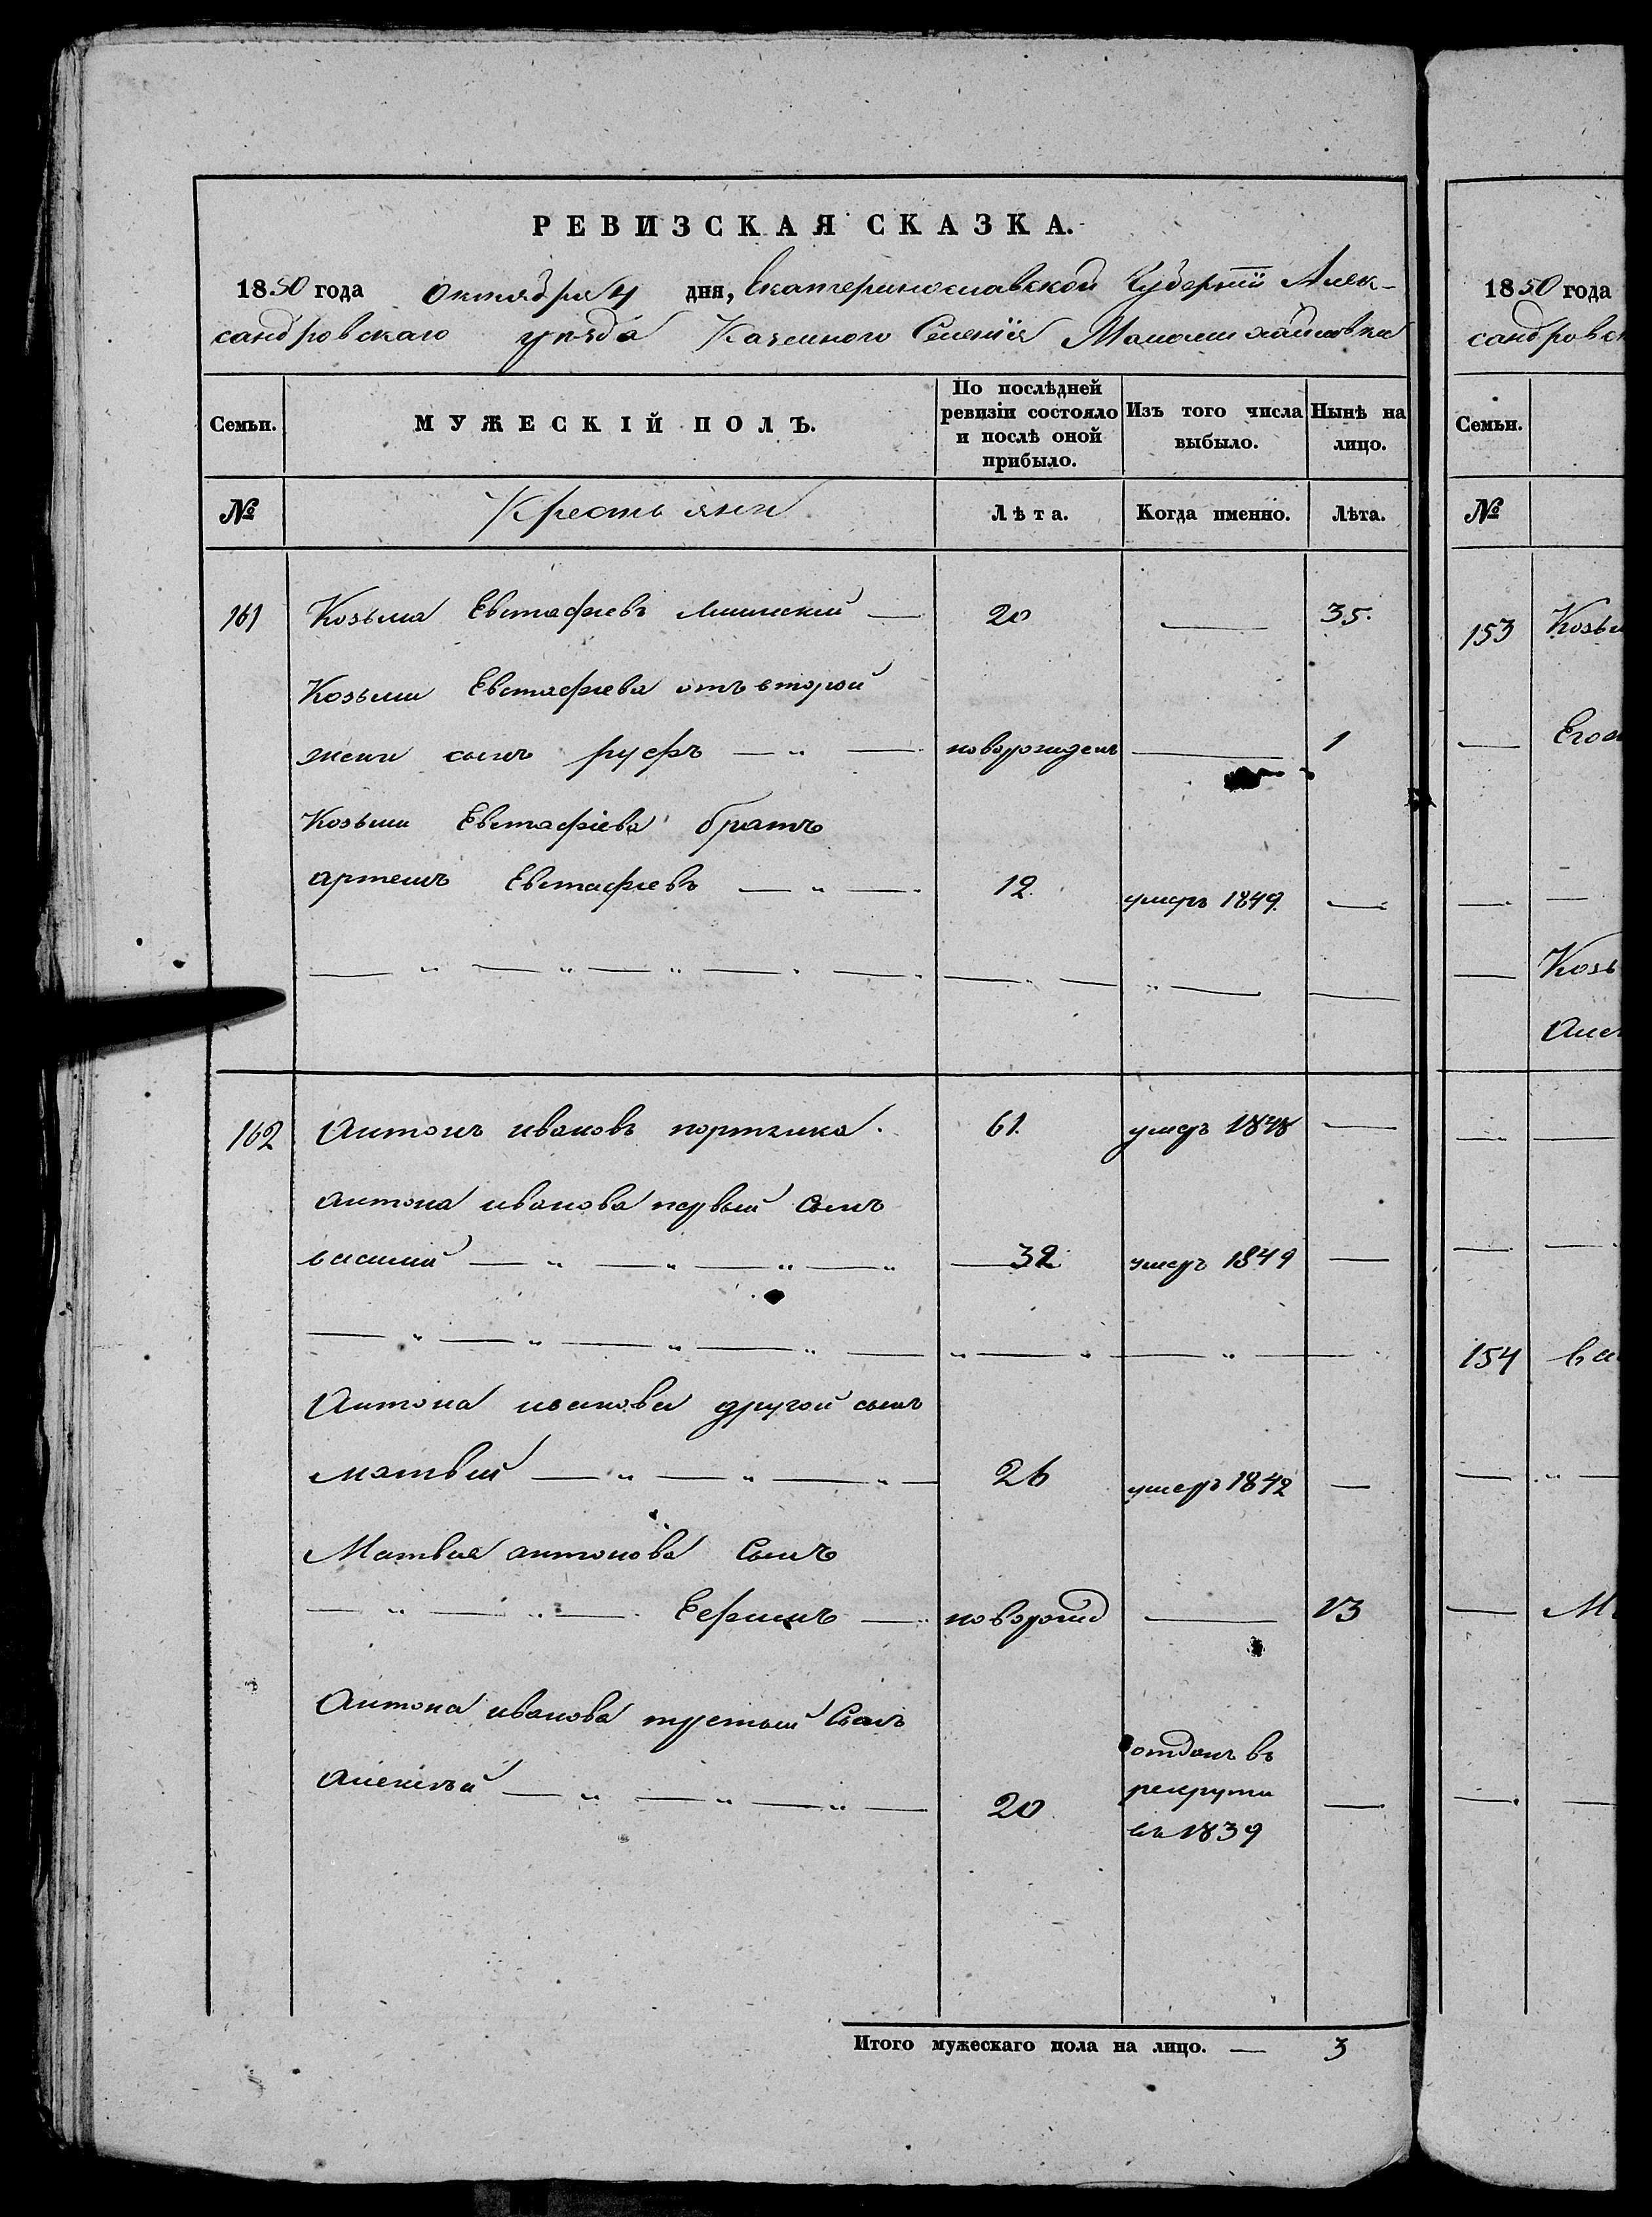 РЕВИЗСКАЯ СКАЗКА.
1850 года октября 4 дня, Екатеринославской Губерніи Алек-
сандровскаго уѣзда Казенного Селенія Маломихайловки
Семьи. МУЖЕСКІЙ ПОЛЪ. По послѣдней ревизіи состояло и послѣ оной прибыло. Изъ того числа выбыло. Нынѣ на лицо.
№ Крестьяни Лѣта. Когда именно. Лѣта.
161 Козьма Евстафиевъ 20 — 35.
Козьми Евстафиева отъ второй
жени сынъ руфъ — новорожденъ — 1
Козьми Евстафіева братъ
артемъ Евстафиевъ — 12. умеръ 1849. —
162 Антонъ ивановъ портянка. 61. умеръ 1848 —
антона иванова первый Сынъ
василий — 32. умеръ 1849 —
Антона иванова другой сынъ
матвѣй — 26 умеръ 1842 —
Матвея антонова Сынъ
— Ефимъ — новорожд — 13
Антона иванова третьий Сынъ
алексѣй — 20. отданъ въ
рекрути
въ 1839 —
Итого мужескаго пола на лицо. — 3
1850 года
сандровск
Семьи.
№
153 Козьм
Его
Козь
Алек
154 ва
М